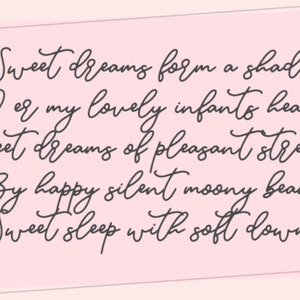 Sweet dreams form a shad
O er my lovely infants hea
eet dreams of pleasant stre
By happy silent moony bea
Sweet sleep with soft down